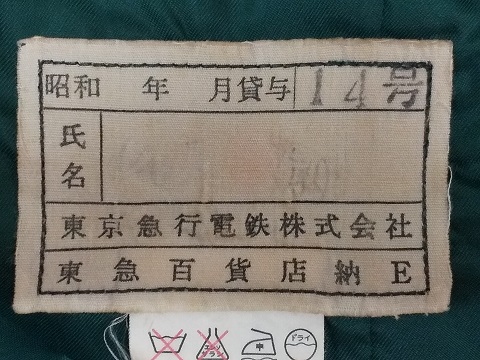 昭和 年 月貸与 14号
氏名
東京急行電鉄株式会社
東急百貨店納 E
エンソサラシ 中 ドライ